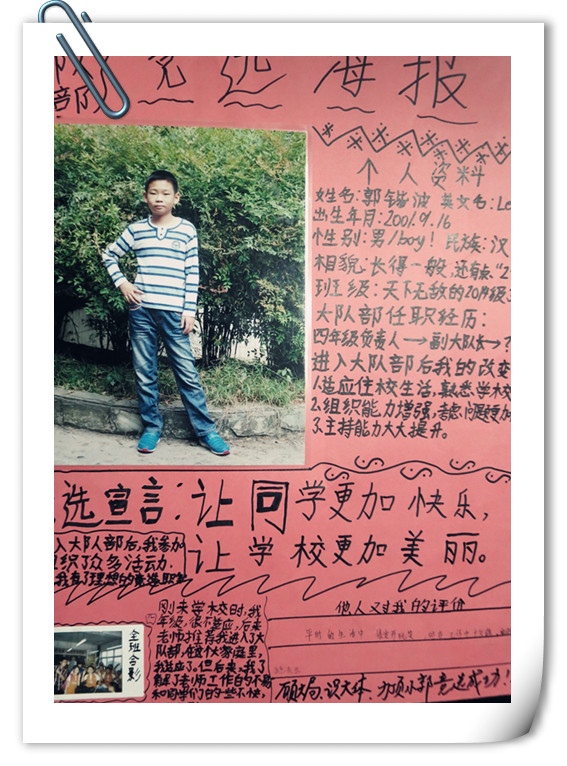 部竞选海报
个人资料
姓名:郭锱波 英文名:Le
出生年月:2001.9.16
性别:男/boy! 民族:汉
相貌:长得一般,还有点"2
班级:天下无敌的20
大队部任职经历:
四年级负责人→副大队长→?
进入大队部后我的改变
1.适应住校生活,熟悉学校
2.组织能力增强,考虑问题更加
3.主持能力大大提升。
选宣言:让同学更加快乐,
让学校更加美丽。
入大队部后,我参加
组织了众多活动.
我有了理想的
刚来学校时,我
四年级,很不适应,后来
老师推荐我进入了大
队部,在这个大家庭里,
我适应了。但后来,我了
解了老师工作的不易
和同学们的一些不快,
全班合影
他人对我的评价
顾大局、识大体、力顶小郭竞选成功!